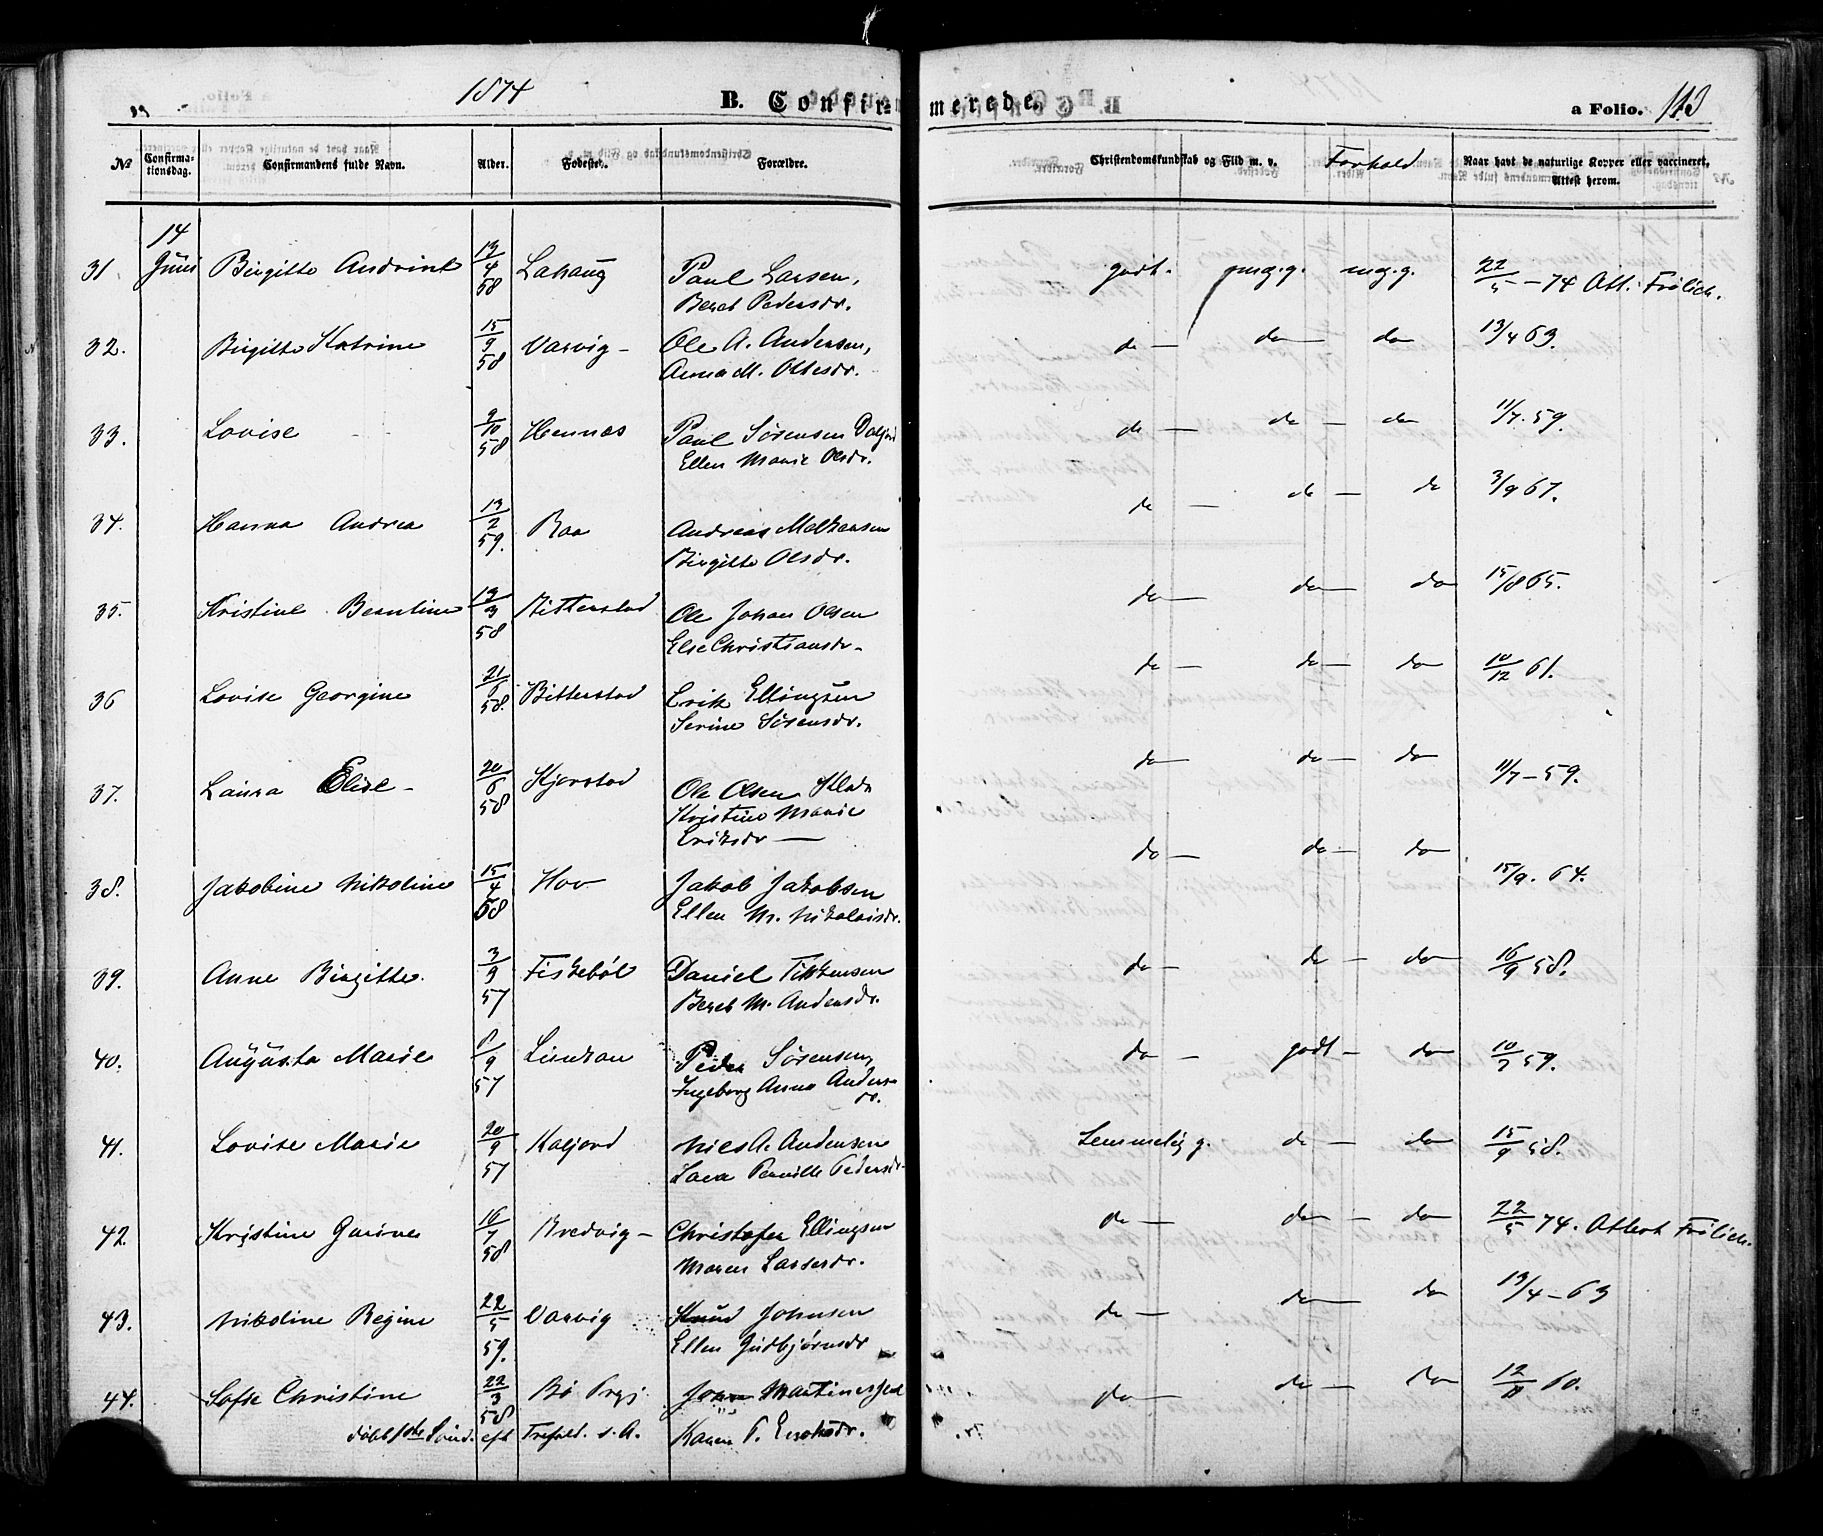 1874 B. Confirmerede. a Folio. 113
No Confirmationsdag. Confirmandens fulde Navn. Alder. Fødested. Forældre. Christendomskundskab og Flid m. v. Forhold Naar havt de naturlige Kopper eller vaccineret, Attest herom.
31. 14 Juni Birgitte Andrine 13/4 58 Lahaug Paul Larsen, godt. mg.g. mg.g. 22/5 - 74 Att. Frölich.
Beret Pedersdr.
32. Birgitte Katrine 15/9 58 Varvig - Ole A. Andersen, do - do do 13/4 63.
Anna M. Ottesdr.
33. Lovise 9/10 58 Hennæs Paul Sørensen do - do - do 11/7. 59.
Ellen Marie Olsdr.
34. Hanna Andrea 13/2 59. Roa Andreas do - do - do 3/9 67.
Birgitte Olsdr.
35. Kristine Berntine 13/3 58 Bitterstad Ole Johan Olsen do - do do 15/8 65.
Else Christiansdr.
36 Lovise Georgine 21 58. Bitterstad Erik Ellingsen do - do - do 10/12 61.
Serine Sørensdr.
37. Laura Elise - 20/6 58 Kjørstad Ole Olsen do - do - do 11/7 - 59.
Kristine Marie
Eriksdr -
38. Jakobine Nikoline 15/4 58 Hov Jakob Jakobsen do - do - do 15/9. 64.
Ellen M. Nikolaisdr.
39. Anne Birgitte. 3/9 57 Fiskebøl Daniel do - do - do 16/9 58.
Beret M. Andersdr.
40. Augusta Marie /9 57 Peder Sørensen, do - godt - do 10/7 59.
Ingeborg Anna Anders
dr.
41. Lovise Marie 20/9 57 Kaljord Nils A. Andersen Temmelig g. do - do 15/9 58.
Lava Pernille Pedersdr.
42. Kristine Gurine 16/7 58 Bredvig - Christofer Ellingsen do - do - do 22/5 74. Attest Frölich.
Maren Larsdr.
43. Nikoline Regine 22/5 59. Varvig Knud Johnsen do - do do 13/4 - 63
Ellen Gudbjørnsdr
44. Sofie Christine 22/3 58 Bö Prgj. do - do - do 12/ 60.
døbt eft s. A. Karen P. Enoksdr.